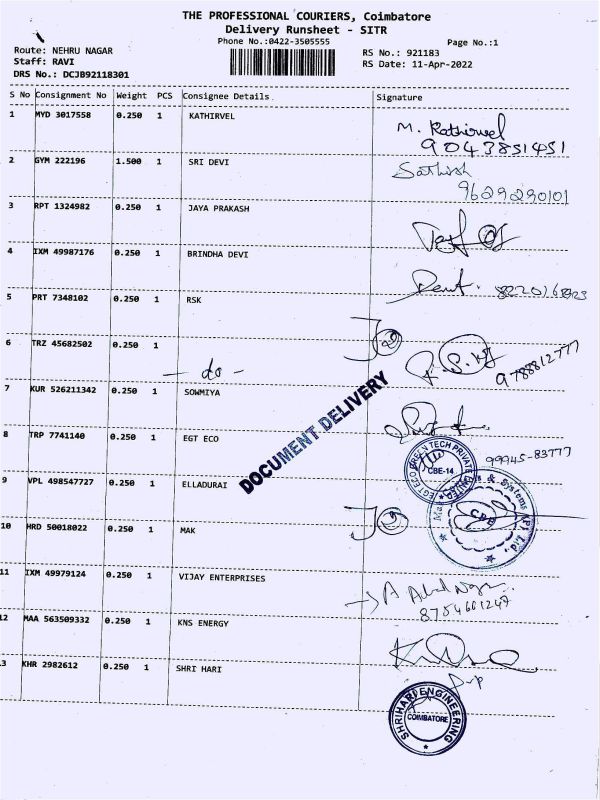 THE PROFESSIONAL COURIERS, Coimbatore
Delivery Runsheet - SITR
Phone No.:0422-3505555
Page No.:1
Route: NEHRU NAGAR
RS No.: 921183
Staff: RAVI
RS Date: 11-Apr-2022
DRS No.: DCJB92118301
S No Consignment No Weight PCS Consignee Details Signature
1 MYD 3017558 0.250 1 KATHIRVEL M. Kathirvel
9043851451
2 GYM 222196 1.500 1 SRI DEVI Sathish
9629290101
3 RPT 1324982 0.250 1 JAYA PRAKASH
4 IXM 49987176 0.250 1 BRINDHA DEVI
5 PRT 7348102 0.250 1 RSK
6 TRZ 45682502 0.250 1 - do - 9788812777
7 KUR 526211342 0.250 1 SOWMIYA
DOCUMENT DELIVERY
8 TRP 7741140 0.250 1 EGT ECO 99945-83777
EGT ECO GREEN TECH PRIVATE LIMITED
CBE-14
9 VPL 498547727 0.250 1 ELLADURAI
& Systems (P) Ltd.
10 HRD 50018022 0.250 1 MAK
11 IXM 49979124 0.250 1 VIJAY ENTERPRISES
8754601247
12 MAA 563509332 0.250 1 KNS ENERGY
3 KHR 2982612 0.250 1 SHRI HARI
SHRIHARI ENGINEERING
COIMBATORE